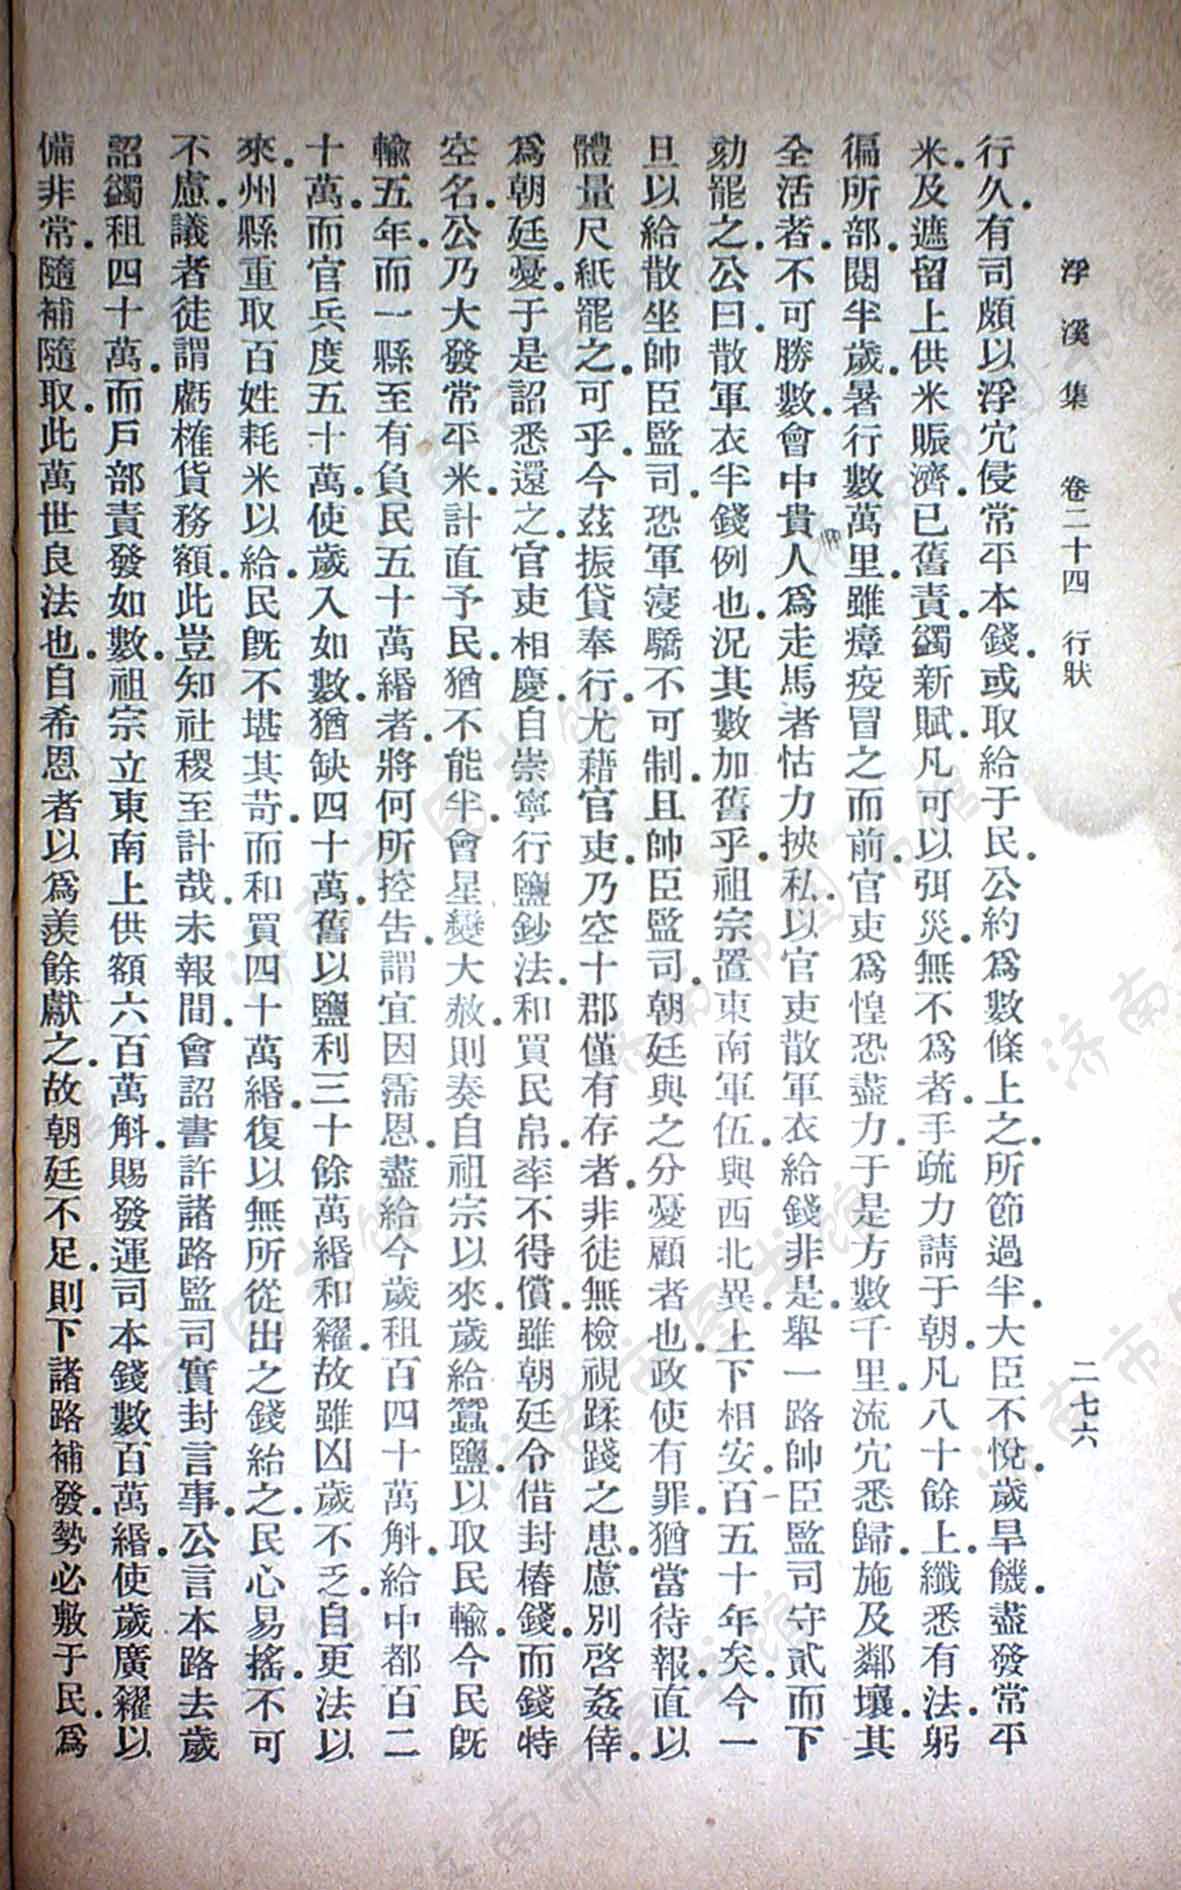 浮溪集 卷二十四 行狀 二七六
行久.有司頗以浮宂侵常平本錢.或取給于民.公約爲數條上之.所節過半.大臣不悅.歲旱饑.盡發常平
米.及遮留上供米賑濟.已舊責.蠲新賦.凡可以弭災.無不爲者.手疏力請于朝.凡八十餘上.纖悉有法.躬
徧所部.閱半歲.暑行數萬里.雖瘴疫冒之而前.官吏爲惶恐盡力.于是方數千里.流宂悉歸.施及鄰壤.其
全活者.不可勝數.會中貴人爲走馬者怙力挾私.以官吏散軍衣給錢非是.舉一路帥臣監司守貳而下
劾罷之.公曰.散軍衣半錢例也.況其數加舊乎.祖宗置東南軍伍.與西北異.上下相安.百五十年矣.今一
旦以給散坐帥臣監司.恐軍寖驕不可制.且帥臣監司.朝廷與之分憂顧者也.政使有罪.猶當待報.直以
體量尺紙罷之.可乎.今茲振貸奉行.尤藉官吏.乃空十郡僅有存者.非徒無檢視蹂踐之患.慮別啓姦倖.
爲朝廷憂.于是詔悉還之.官吏相慶.自崇寧行鹽鈔法.和買民帛.率不得償.雖朝廷令借封樁錢.而錢特
空名.公乃大發常平米.計直予民.猶不能半.會星變大赦.則奏自祖宗以來.歲給蠶鹽.以取民輸.今民旣
輸五年.而一縣至有負民五十萬緡者.將何所控告.謂宜因霈恩.盡給今歲租.百四十萬斛.給中都百二
十萬.而官兵度五十萬.使歲入如數.猶缺四十萬.舊以鹽利三十餘萬緡和糴.故雖凶歲不乏.自更法以
來.州縣重取百姓耗米以給.民旣不堪其苛.而和買四十萬緡.復以無所從出之錢紿之.民心易搖.不可
不慮.議者徒謂虧榷貨務額.此豈知社稷至計哉.未報間.會詔書許諸路監司實封言事.公言本路去歲
詔蠲租四十萬.而戶部責發如數.祖宗立東南上供額六百萬斛.賜發運司本錢數百萬緡.使歲廣糴以
備非常.隨補隨取.此萬世良法也.自希恩者以爲羨餘獻之.故朝廷不足.則下諸路補發.勢必敷于民.爲